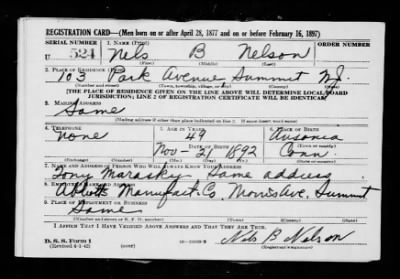 REGISTRATION CARD—(Men born on or after April 28, 1877 and on or before February 16, 1897)
SERIAL NUMBER 1. NAME (Print)
U 524 Nels B Nelson
(First) (Middle) (Last)
2. PLACE OF RESIDENCE (Print)
103 Park Avenue Summit N.J.
(Number and street) (Town, township, village, or city) (County) (State)
[THE PLACE OF RESIDENCE GIVEN ON THE LINE ABOVE WILL DETERMINE LOCAL BOARD
JURISDICTION; LINE 2 OF REGISTRATION CERTIFICATE WILL BE IDENTICAL]
3. MAILING ADDRESS
Same
[Mailing address if other than place indicated on line 2. If same insert word same]
4. TELEPHONE 5. AGE IN YEARS 6. PLACE OF BIRTH
None 49 Ansonia
DATE OF BIRTH (Town or county)
Nov 21 1892 Conn
(Exchange) (Number) (Mo.) (Day) (Yr.) (State or country)
7. NAME AND ADDRESS OF PERSON WHO WILL ALWAYS KNOW YOUR ADDRESS
Tony Marasky Same address
8. EMPLOYER'S NAME AND ADDRESS
Manufact. Co. Morris Ave. Summit
9. PLACE OF EMPLOYMENT OR BUSINESS
Same
(Number and street or R. F. D. number) (Town) (County) (State)
I AFFIRM THAT I HAVE VERIFIED ABOVE ANSWERS AND THAT THEY ARE TRUE.
D. S. S. Form 1
(Revised 4-1-42) (over) Nels B Nelson
(Registrant's signature)